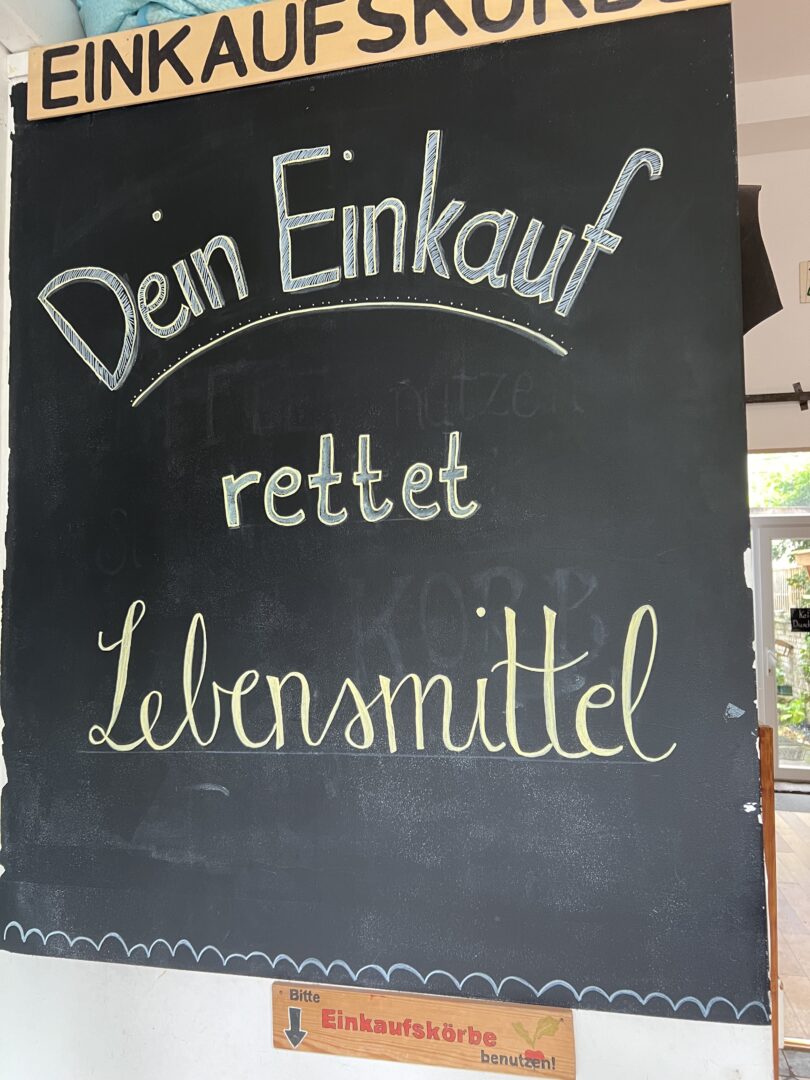 EINKAUFSKÖRBE
Dein Einkauf
rettet
Lebensmittel
Bitte
Einkaufskörbe
benutzen!